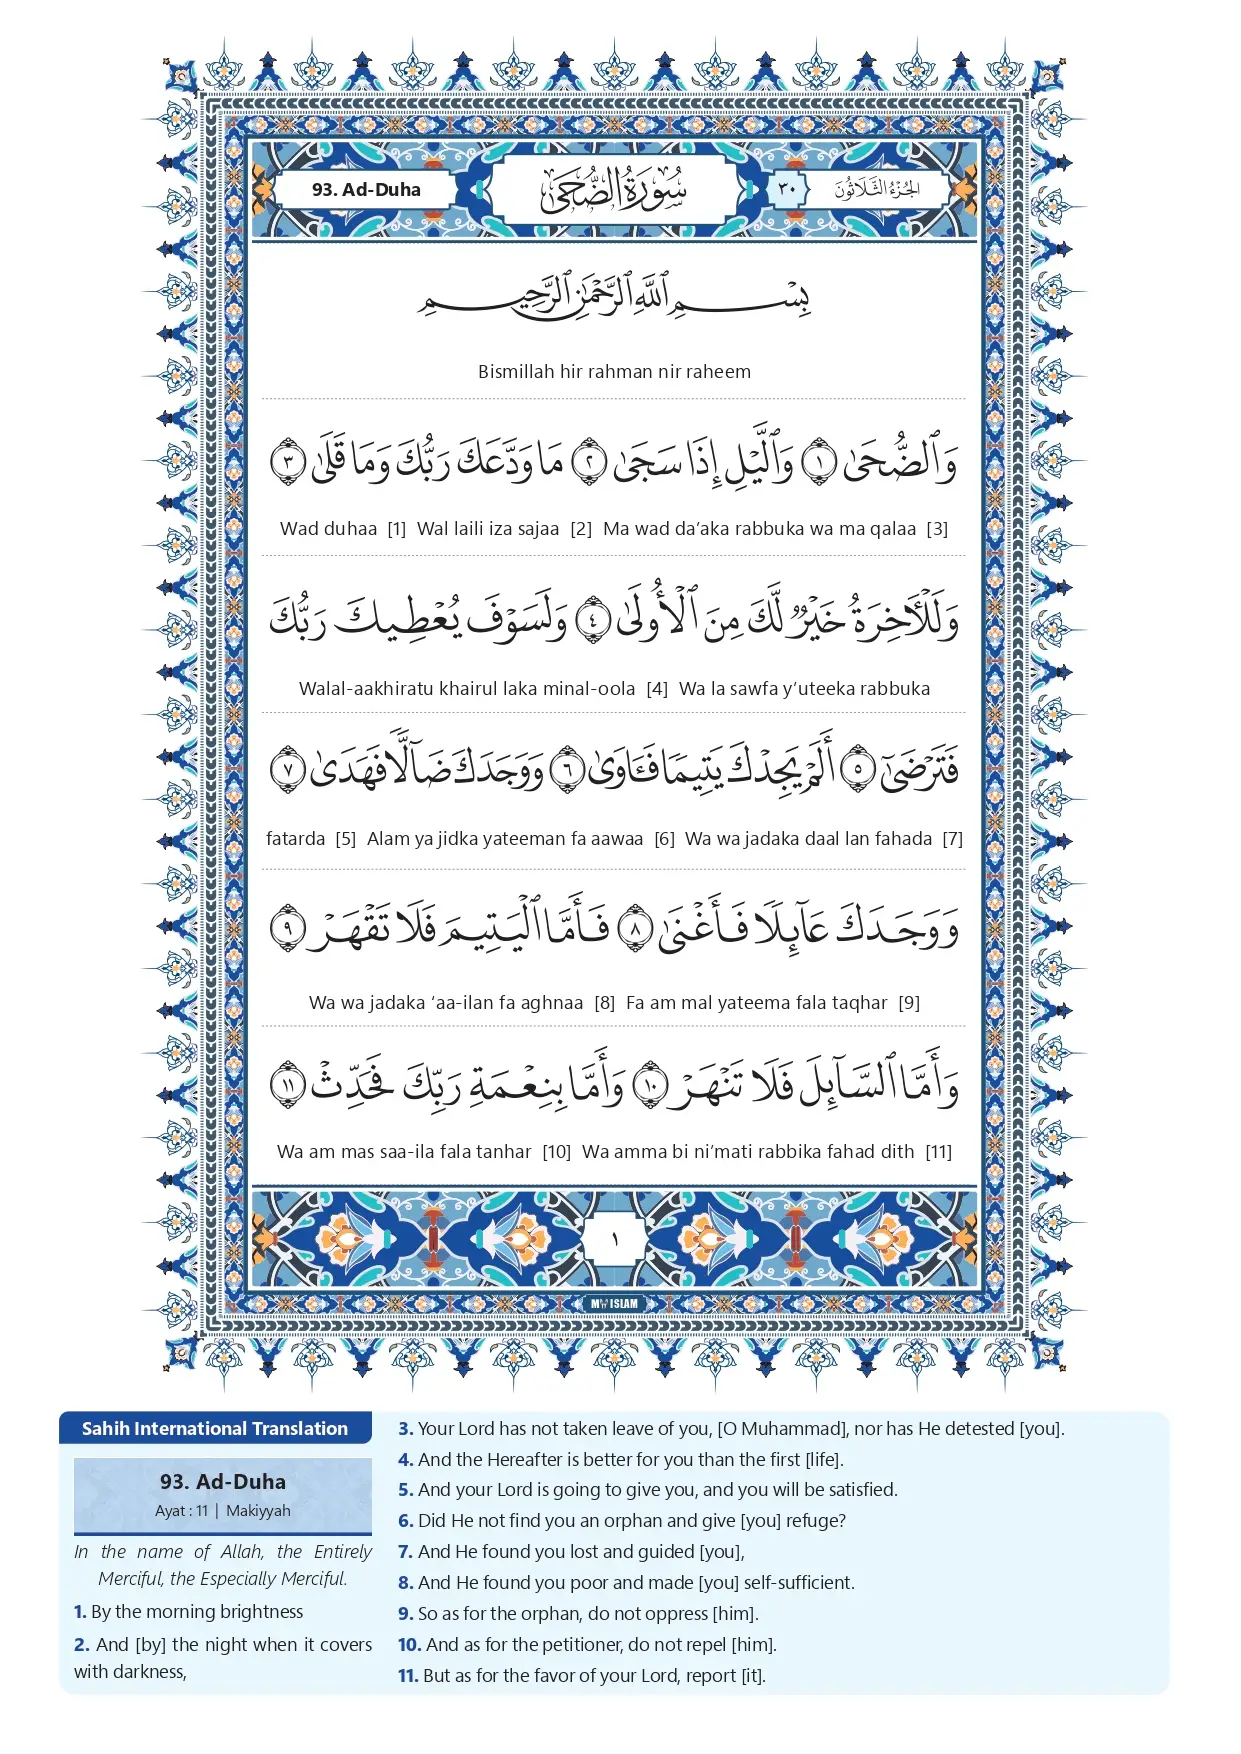 93. Ad-Duha
سُورَةُ الضُّحَىٰ
٣٠
الجُزْءُ الثَّلَاثُونَ
بِسْمِ ٱللَّهِ ٱلرَّحْمَٰنِ ٱلرَّحِيمِ
Bismillah hir rahman nir raheem
وَٱلضُّحَىٰ ١ وَٱلَّيْلِ إِذَا سَجَىٰ ٢ مَا وَدَّعَكَ رَبُّكَ وَمَا قَلَىٰ ٣
Wad duhaa [1] Wal laili iza sajaa [2] Ma wad da’aka rabbuka wa ma qalaa [3]
وَلَلْآخِرَةُ خَيْرٌ لَّكَ مِنَ ٱلْأُولَىٰ ٤ وَلَسَوْفَ يُعْطِيكَ رَبُّكَ
Walal-aakhiratu khairul laka minal-oola [4] Wa la sawfa y’uteeka rabbuka
فَتَرْضَىٰٓ ٥ أَلَمْ يَجِدْكَ يَتِيمًا فَـَٔاوَىٰ ٦ وَوَجَدَكَ ضَآلًّا فَهَدَىٰ ٧
fatarda [5] Alam ya jidka yateeman fa aawaa [6] Wa wa jadaka daal lan fahada [7]
وَوَجَدَكَ عَآئِلًا فَأَغْنَىٰ ٨ فَأَمَّا ٱلْيَتِيمَ فَلَا تَقْهَرْ ٩
Wa wa jadaka ‘aa-ilan fa aghnaa [8] Fa am mal yateema fala taqhar [9]
وَأَمَّا ٱلسَّآئِلَ فَلَا تَنْهَرْ ١٠ وَأَمَّا بِنِعْمَةِ رَبِّكَ فَحَدِّثْ ١١
Wa am mas saa-ila fala tanhar [10] Wa amma bi ni’mati rabbika fahad dith [11]
١
MY ISLAM
Sahih International Translation
93. Ad-Duha
Ayat : 11 | Makiyyah
In the name of Allah, the Entirely
Merciful, the Especially Merciful.
1. By the morning brightness
2. And [by] the night when it covers
with darkness,
3. Your Lord has not taken leave of you, [O Muhammad], nor has He detested [you].
4. And the Hereafter is better for you than the first [life].
5. And your Lord is going to give you, and you will be satisfied.
6. Did He not find you an orphan and give [you] refuge?
7. And He found you lost and guided [you],
8. And He found you poor and made [you] self-sufficient.
9. So as for the orphan, do not oppress [him].
10. And as for the petitioner, do not repel [him].
11. But as for the favor of your Lord, report [it].